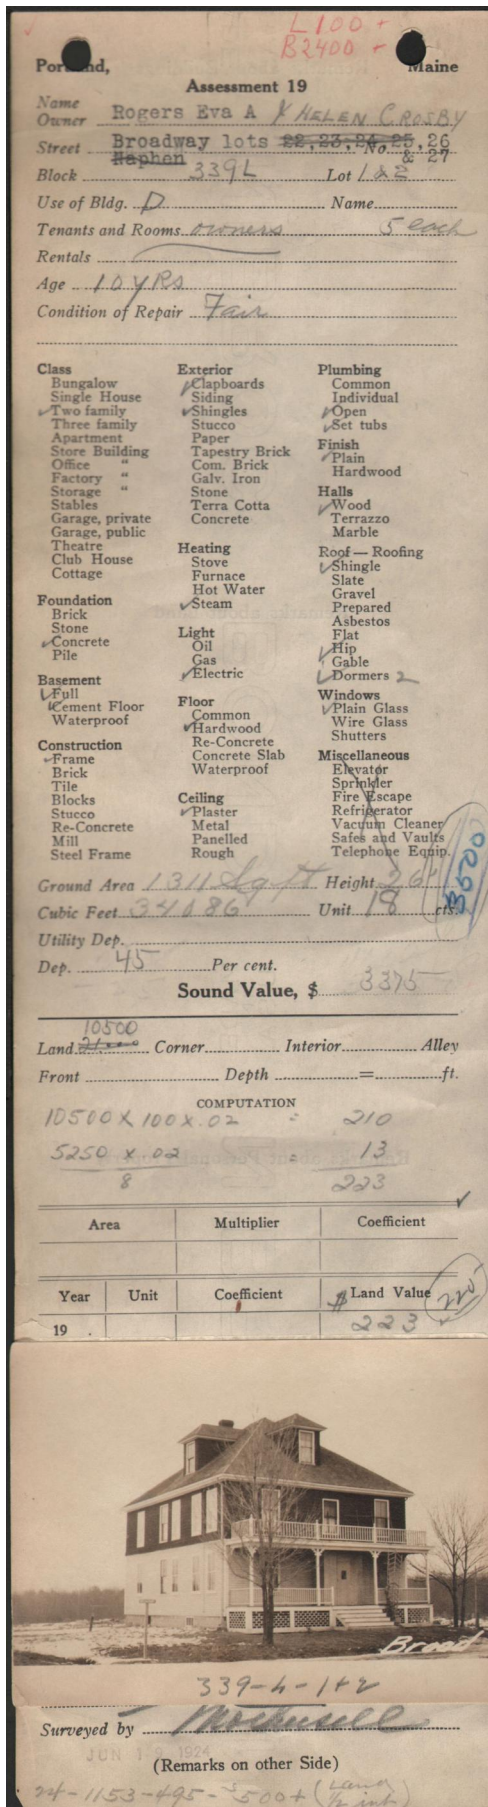 L 100 +
B 2400 -
Portland, Maine
Assessment 19
Name
Owner Rogers Eva A & HELEN CROSBY
Street Broadway lots 22,23,24,25,26
Naphen No. & 27
Block 339L Lot 1&2
Use of Bldg. D Name
Tenants and Rooms owners 5 each
Rentals
Age 10 yRs
Condition of Repair Fair
Class
Bungalow
Single House
✓Two family
Three family
Apartment
Store Building
Office "
Factory "
Storage "
Stables
Garage, private
Garage, public
Theatre
Club House
Cottage
Foundation
Brick
Stone
✓Concrete
Pile
Basement
✓Full
✓Cement Floor
Waterproof
Construction
✓Frame
Brick
Tile
Blocks
Stucco
Re-Concrete
Mill
Steel Frame
Exterior
✓Clapboards
Siding
✓Shingles
Stucco
Paper
Tapestry Brick
Com. Brick
Galv. Iron
Stone
Terra Cotta
Concrete
Heating
Stove
Furnace
Hot Water
✓Steam
Light
Oil
Gas
✓Electric
Floor
Common
✓Hardwood
Re-Concrete
Concrete Slab
Waterproof
Ceiling
✓Plaster
Metal
Panelled
Rough
Plumbing
Common
Individual
✓Open
✓Set tubs
Finish
✓Plain
Hardwood
Halls
✓Wood
Terrazzo
Marble
Roof — Roofing
✓Shingle
Slate
Gravel
Prepared
Asbestos
Flat
✓Hip
Gable
✓Dormers 2
Windows
✓Plain Glass
Wire Glass
Shutters
Miscellaneous
Elevator
Sprinkler
Fire Escape
Refrigerator
Vacuum Cleaner
Safes and Vaults
Telephone Equip.
Ground Area 1311 Sq ft Height 26+
Cubic Feet 34086 Unit 18 cts.
Utility Dep.
Dep. 45 Per cent.
Sound Value, $ 3375
10500
Land Corner Interior Alley
Front Depth = ft.
COMPUTATION
10500 X 100 X .02 = 210
5250 x 02 = 13
8 223
Area Multiplier Coefficient
Year Unit Coefficient $ Land Value 220
19 . 223
Broad
339-L-1+2
Surveyed by
JUN 19 1924
(Remarks on other Side)
24-1153-495- $500+ (Land